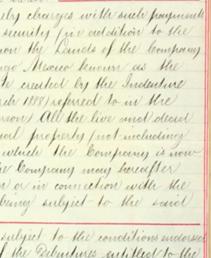 charges with such payments
security (in addition to the
on the Lands of the Company
Mexico known as the
created by the Indenture
1889 referred to in the
All the live and dead
property (not including
which the Company is now
the Company may hereafter
or in connection with the
being subject to the said
subject to the conditions endorsed
of the Debentures entitled to the